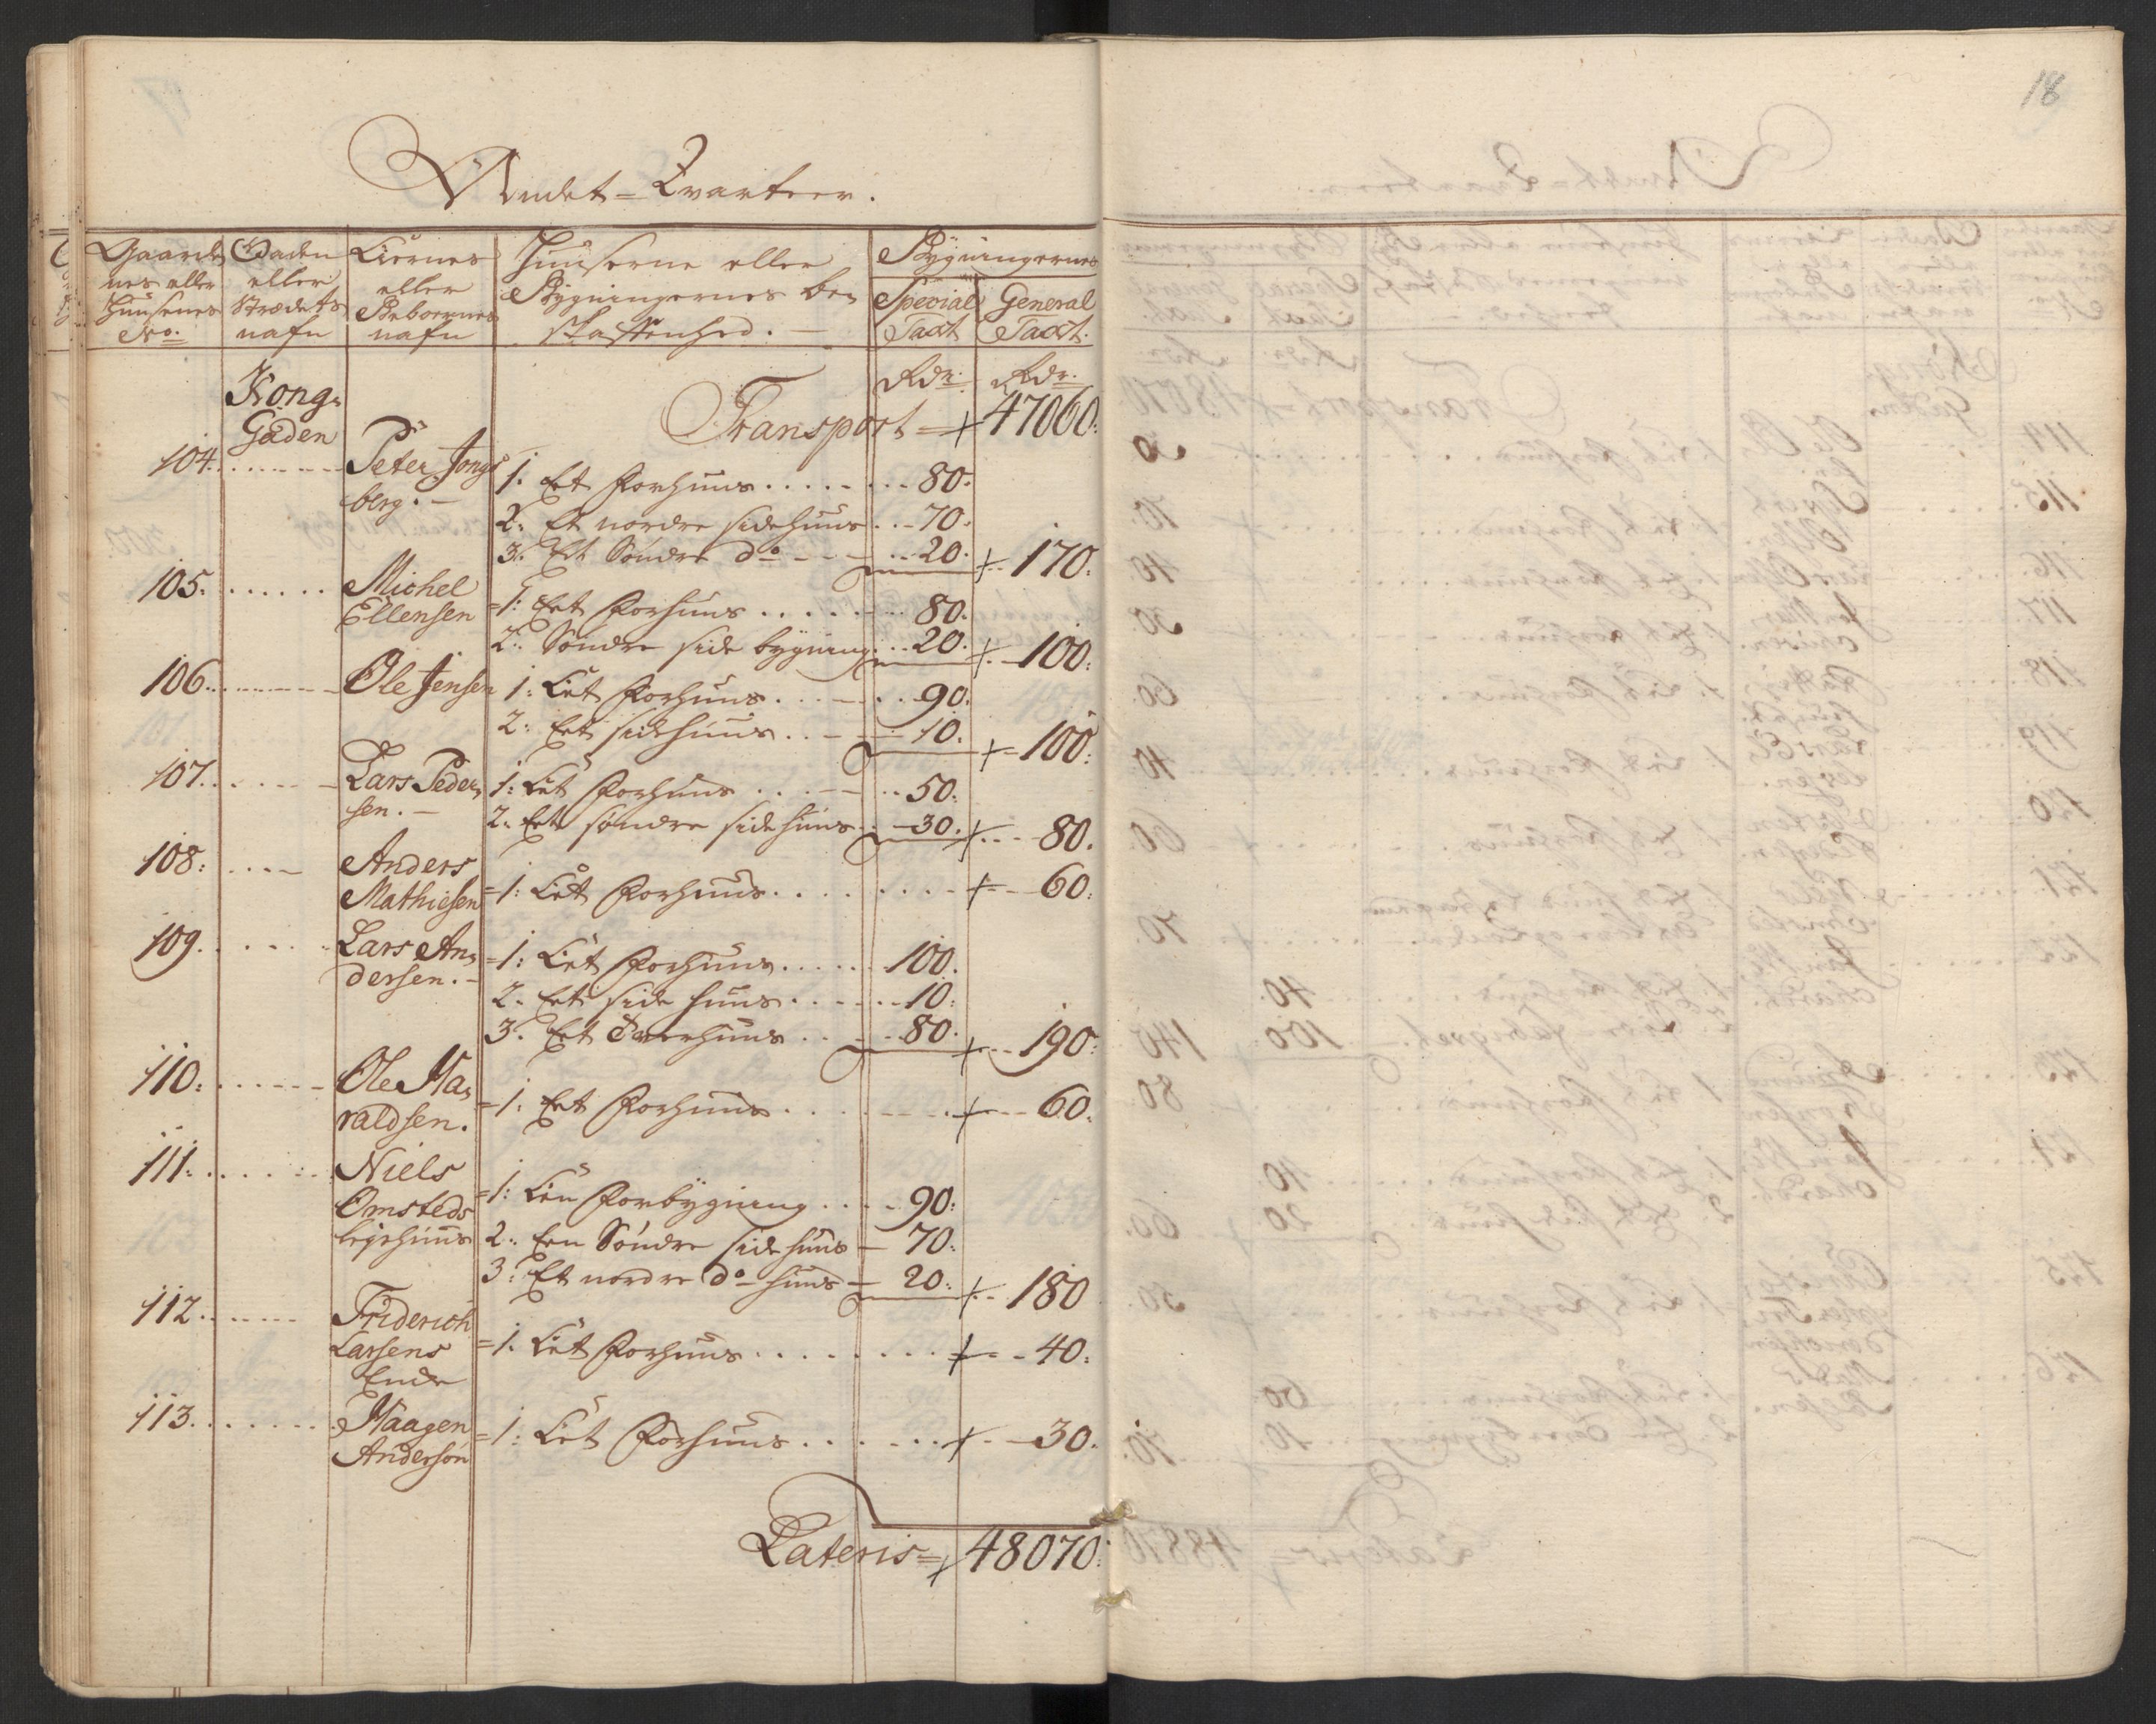 18
Andet = Qvarteer.
Gaarde
nes eller
Huusenes
No.
Gaden
eller
Strædets
nafn
Eiernes
eller
Beboernes
nafn
Huuserne eller
Bÿgningernes be=
skaffenhed. —
Bÿgningernes
Special
Taxt
General
Taxt.
Rdr. Rdr.
Kong=
Gaden
Transport = 47060:
104. Peter Jongs
berg. —
1. Et Forhuus 80.
2. Et nordre sidehuus 70.
3. Et Søndre do 20. 170.
105. Michel
Ellensen
1: Eet Forhuus 80.
2. Søndre side bygning 20. 100:
106. Ole Jensen 1: Eet Forhuus 90.
2: Eet sidehuus 10. 100:
107. Lars Peder=
sen. —
1: Eet Forhuus 50.
2. Eet søndre sidehuus 30. 80.
108: Anders
Mathiesen
1. Eet Forhuus 60.
109. Lars An=
dersen. —
1: Eet Forhuus 100.
2. Eet side huus 10:
3. Eet Tverhuus 80. 190:
110: Ole Ha=
raldsen.
1. Eet Forhuus 60.
111: Niels
Omsteds
lejehuus
1: Een Forbÿgning 90:
2. Een Søndre side huus 70:
3: Et nordre do huus 20: 180
112. Friderich
Larsens
Enke
1. Eet Forhuus 40:
113. Haagen
Anderson
1: Eet Forhuus 30.
Lateris = 48070: